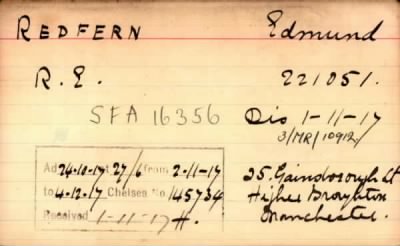 REDFERN Edmund
R. E. 221051.
SFA 16356 Dis 1-11-17
3/MR/10912.
Ad 24-10-17 at 27/6 from 2-11-17
to 4.12.17 Chelsea No 145734
Received 1-11-17 H.
25. Gainsborough St
Higher Broughton
Manchester.